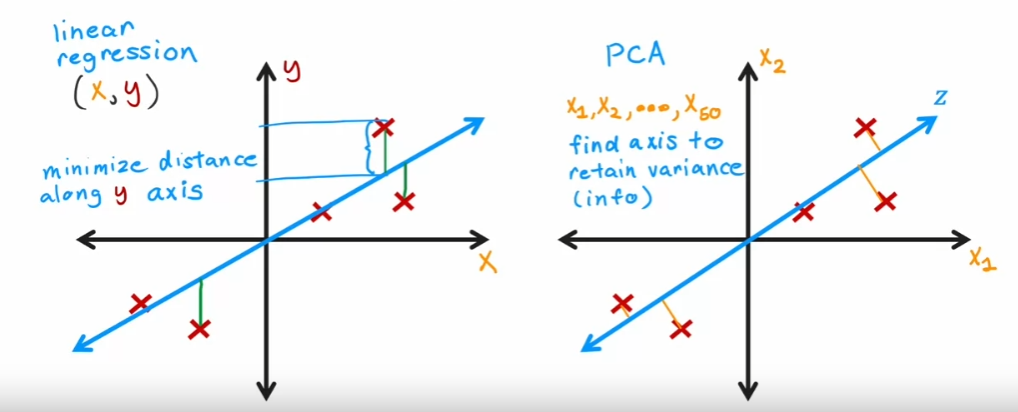 linear
regression
(x,y)
y
minimize distance
along y axis
x
PCA
x₂
x₁,x₂,....,x₅₀
z
find axis to
retain variance
(info)
x₁